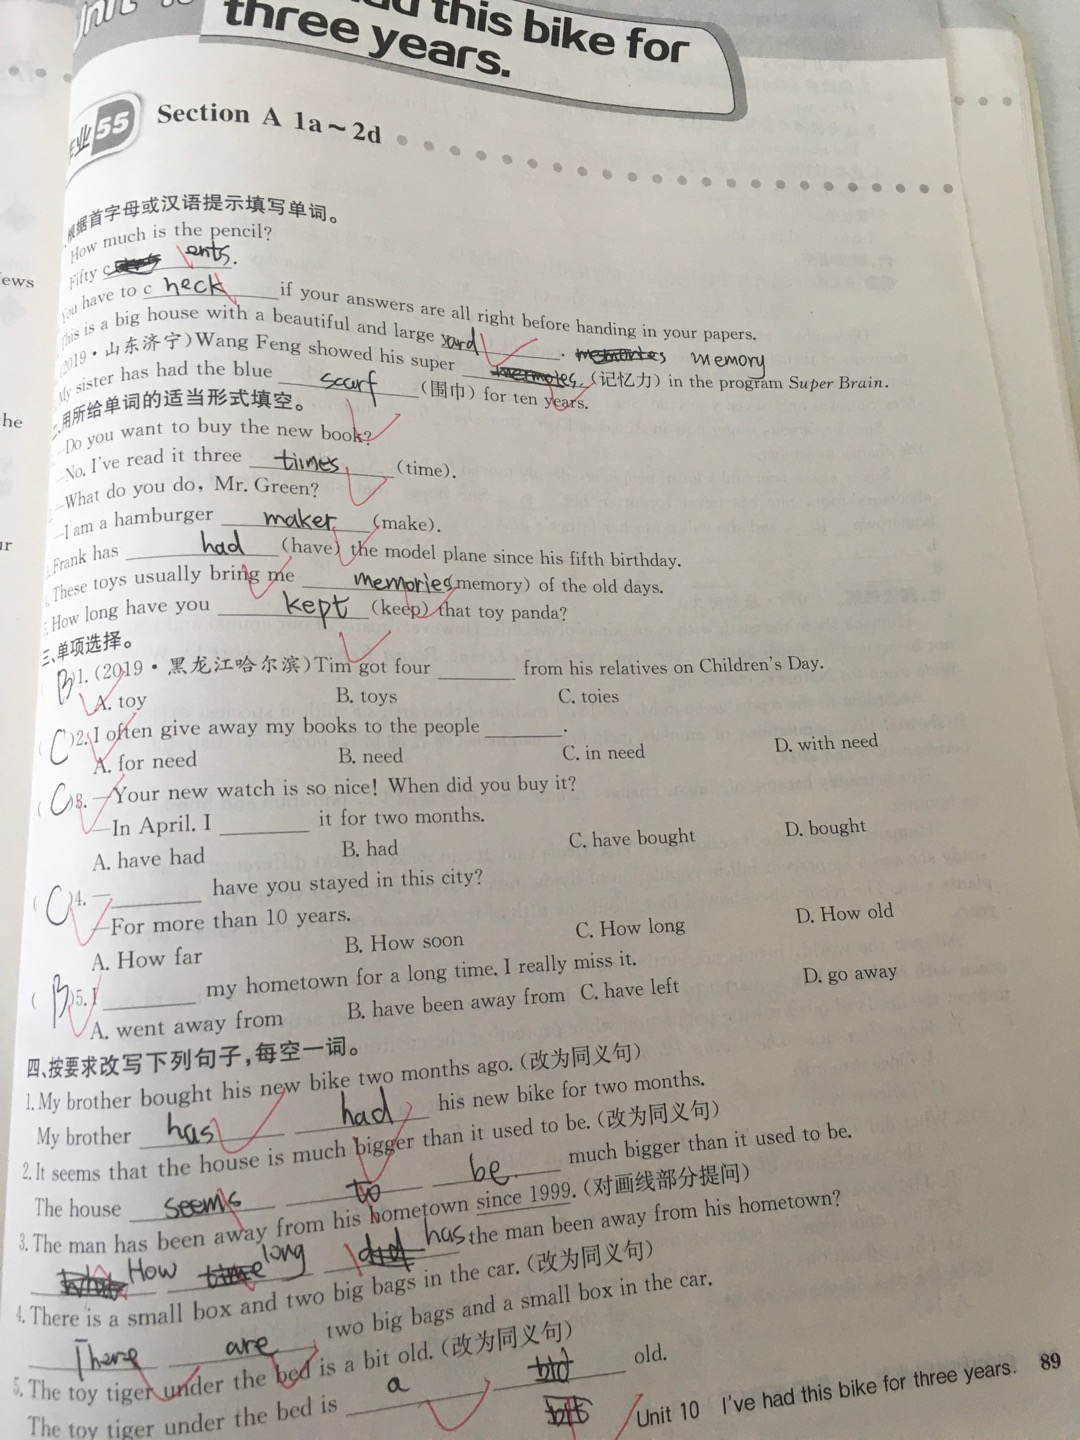 this bike for
three years.
55
Section A 1a~2d
根据首字母或汉语提示填写单词。
How much is the pencil?
Fifty c ents.
You have to c heck if your answers are all right before handing in your papers.
This is a big house with a beautiful and large yard.
2019·山东济宁)Wang Feng showed his super memory (记忆力) in the program Super Brain.
My sister has had the blue scarf (围巾) for ten years.
二、用所给单词的适当形式填空。
—Do you want to buy the new book?
—No. I've read it three times (time).
—What do you do, Mr. Green?
—I am a hamburger maker (make).
Frank has had (have) the model plane since his fifth birthday.
These toys usually bring me memories memory) of the old days.
How long have you kept (keep) that toy panda?
三、单项选择。
B )1. (2019·黑龙江哈尔滨)Tim got four ______ from his relatives on Children's Day.
A. toy B. toys C. toies
( C )2. I often give away my books to the people ______.
A. for need B. need C. in need D. with need
( C )3. —Your new watch is so nice! When did you buy it?
—In April. I ______ it for two months.
A. have had B. had C. have bought D. bought
( C )4. —______ have you stayed in this city?
—For more than 10 years.
A. How far B. How soon C. How long D. How old
( B )5. I ______ my hometown for a long time. I really miss it.
A. went away from B. have been away from C. have left D. go away
四、按要求改写下列句子,每空一词。
1. My brother bought his new bike two months ago. (改为同义句)
My brother has had his new bike for two months.
2. It seems that the house is much bigger than it used to be. (改为同义句)
The house seems to be much bigger than it used to be.
3. The man has been away from his hometown since 1999. (对画线部分提问)
How long has the man been away from his hometown?
4. There is a small box and two big bags in the car. (改为同义句)
There are two big bags and a small box in the car.
5. The toy tiger under the bed is a bit old. (改为同义句)
The toy tiger under the bed is a old.
Unit 10 I've had this bike for three years. 89